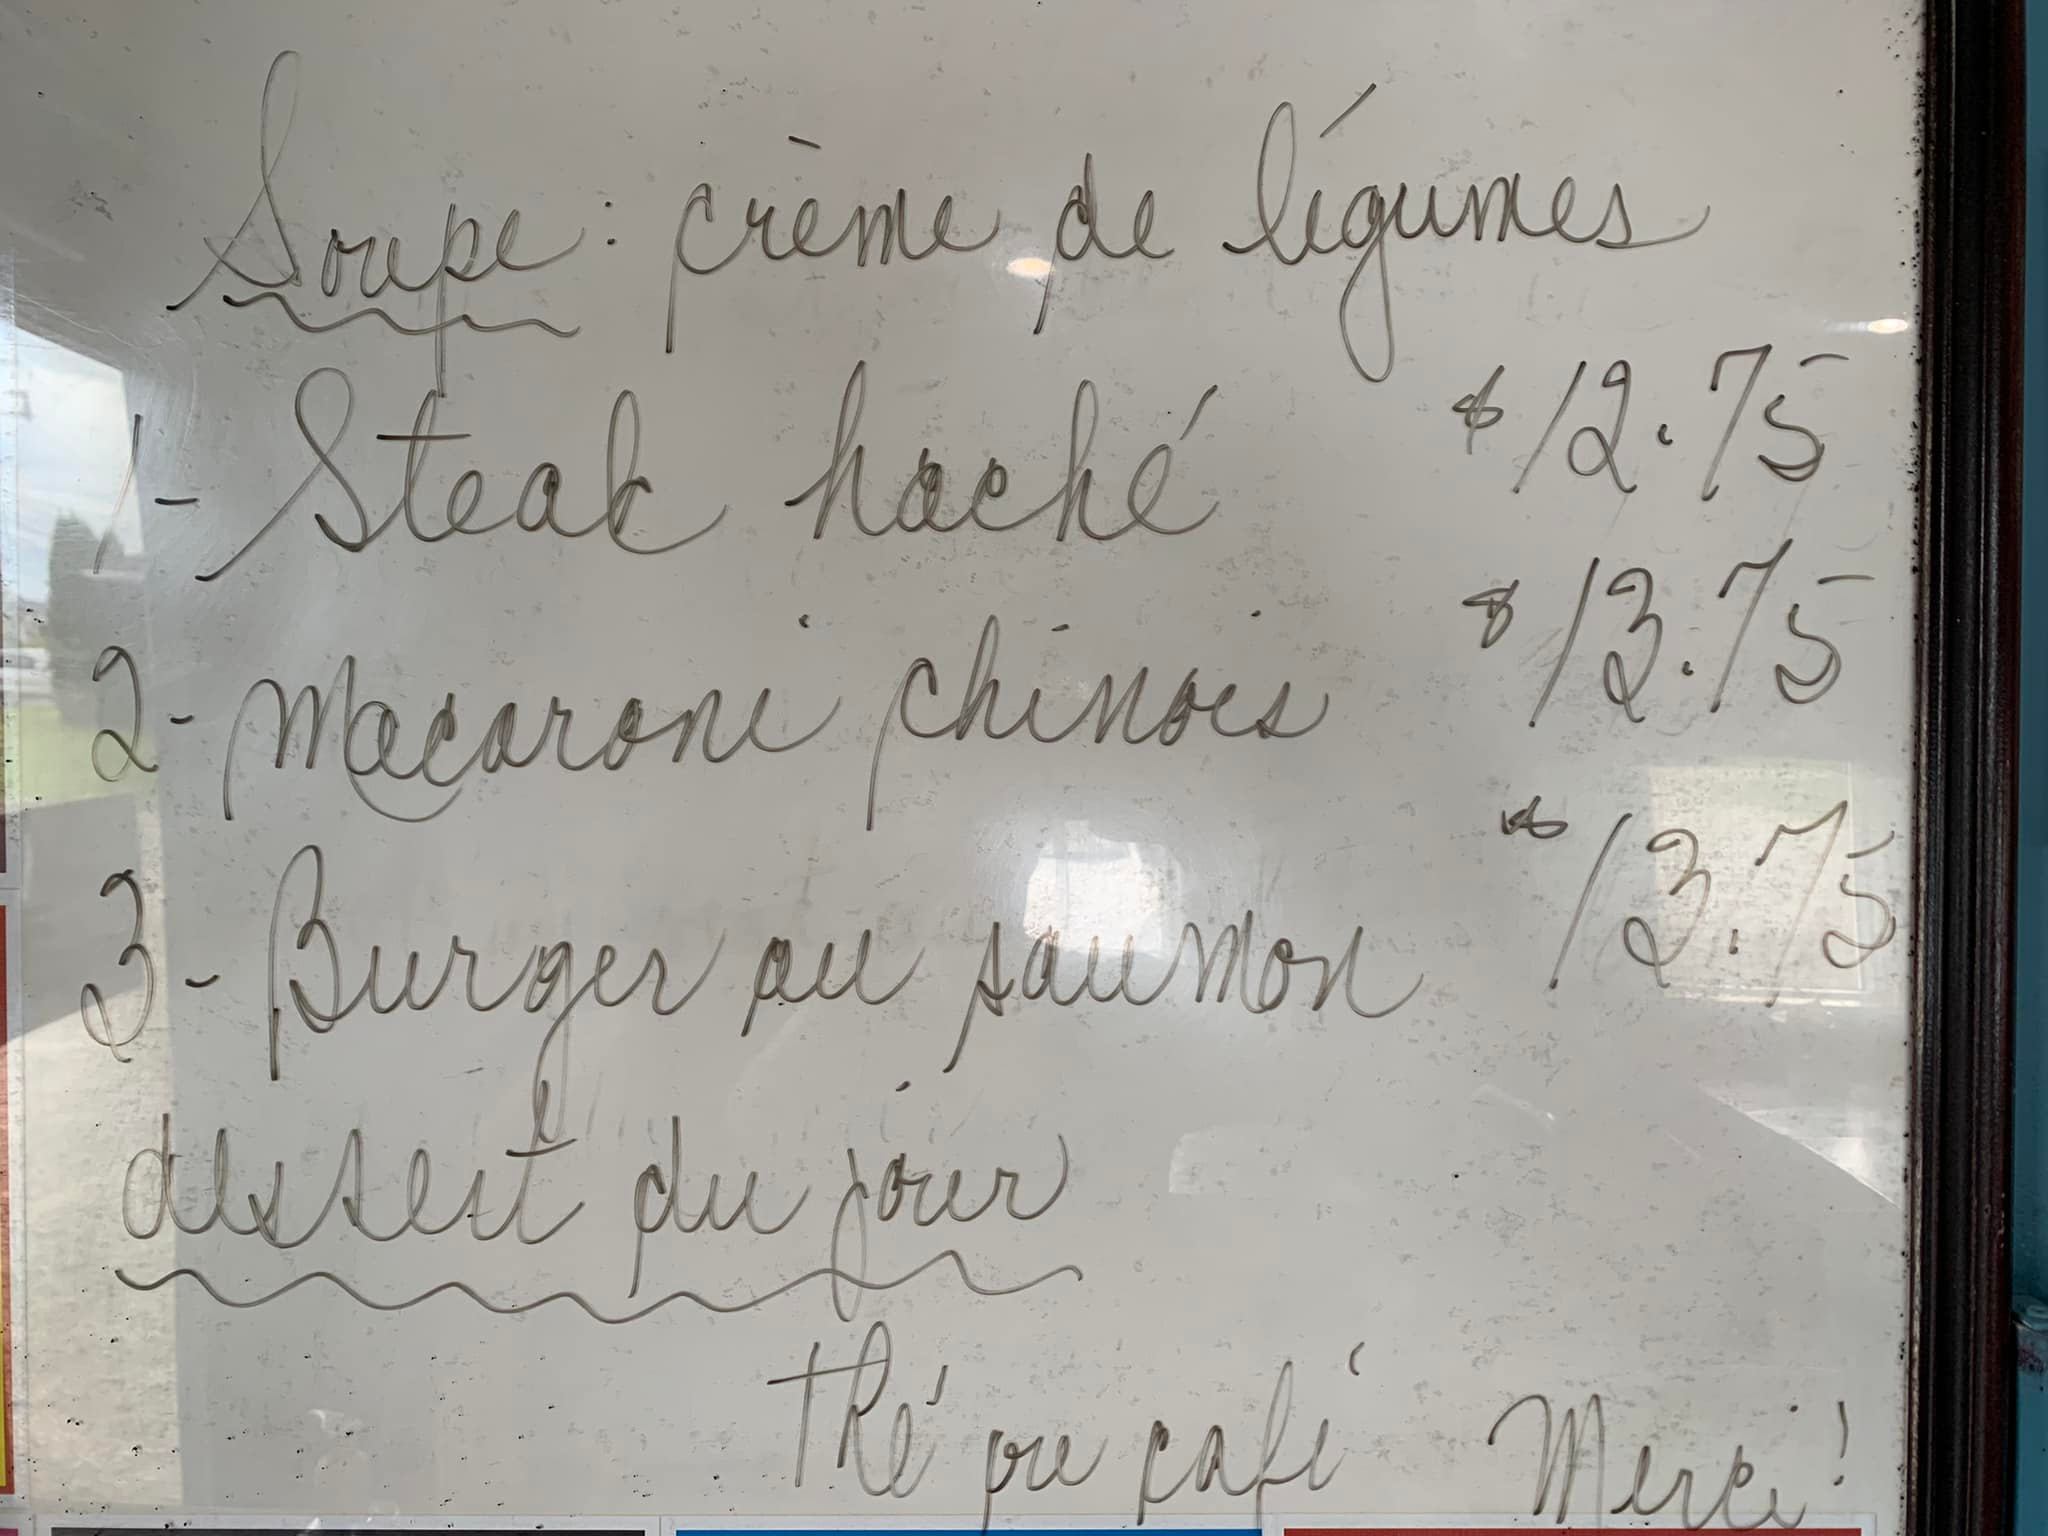 Soupe : crème de légumes
1- Steak haché $12.75
2- Macaroni chinois $13.75
3- Burger au saumon $13.75
dessert du jour
thé ou café Merci !